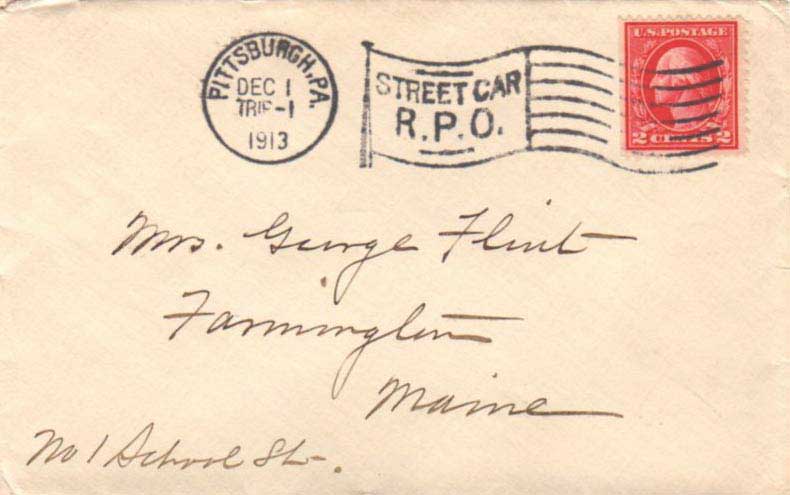 PITTSBURGH, PA.
DEC 1
TRIP-1
1913
STREET CAR
R.P.O.
U.S. POSTAGE
2 CENTS 2
Mrs. George Flint
Farmington
Maine
No 1 School St.